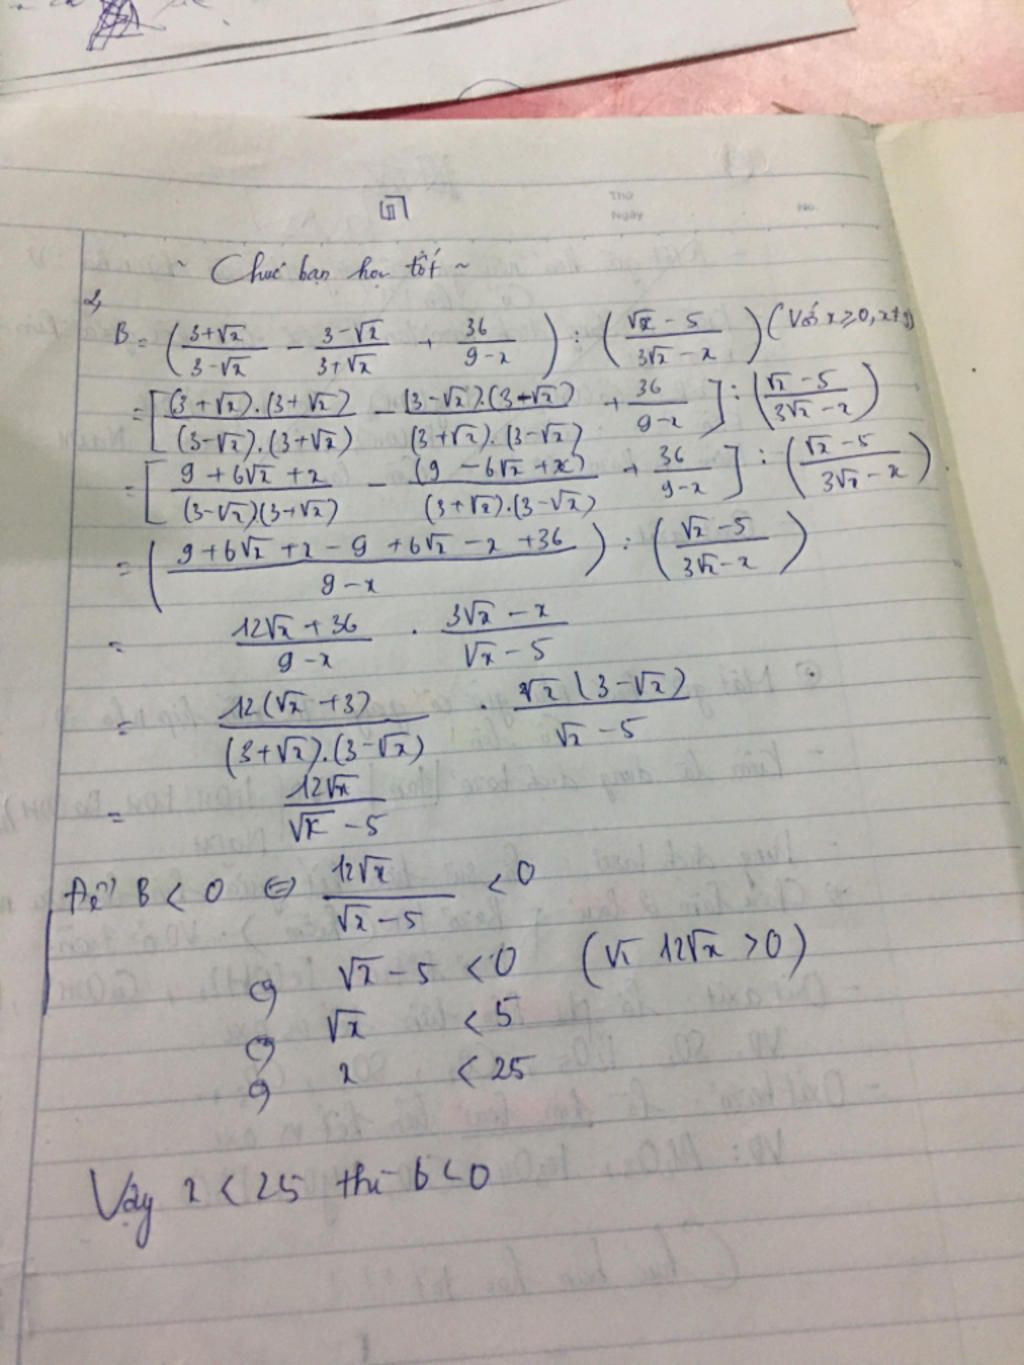 Thứ
Ngày
No.
~ Chúc bạn học tốt ~
2,
B = ( (3+√x)/(3-√x) - (3-√x)/(3+√x) + 36/(9-x) ) : ( (√x - 5)/(3√x - x) ) (Với x ≥ 0, x ≠ 9)
= [ (3+√x).(3+√x)/(3-√x).(3+√x) - (3-√x).(3+√x)/(3+√x).(3-√x) + 36/(9-x) ] : ( (√x - 5)/(3√x - x) )
= [ (9 + 6√x + x)/(3-√x)(3+√x) - (9 - 6√x + x)/(3+√x).(3-√x) + 36/(9-x) ] : ( (√x - 5)/(3√x - x) )
= ( (9 + 6√x + x - 9 + 6√x - x + 36)/(9-x) ) : ( (√x - 5)/(3√x - x) )
= (12√x + 36)/(9-x) . (3√x - x)/(√x - 5)
= 12(√x + 3)/(3+√x).(3-√x) . √x(3-√x)/(√x - 5)
= 12√x/(√x - 5)
Để B < 0 ⇔ 12√x/(√x - 5) < 0
⇔ √x - 5 < 0 (vì 12√x > 0)
⇔ √x < 5
⇔ x < 25
Vậy x < 25 thì B < 0